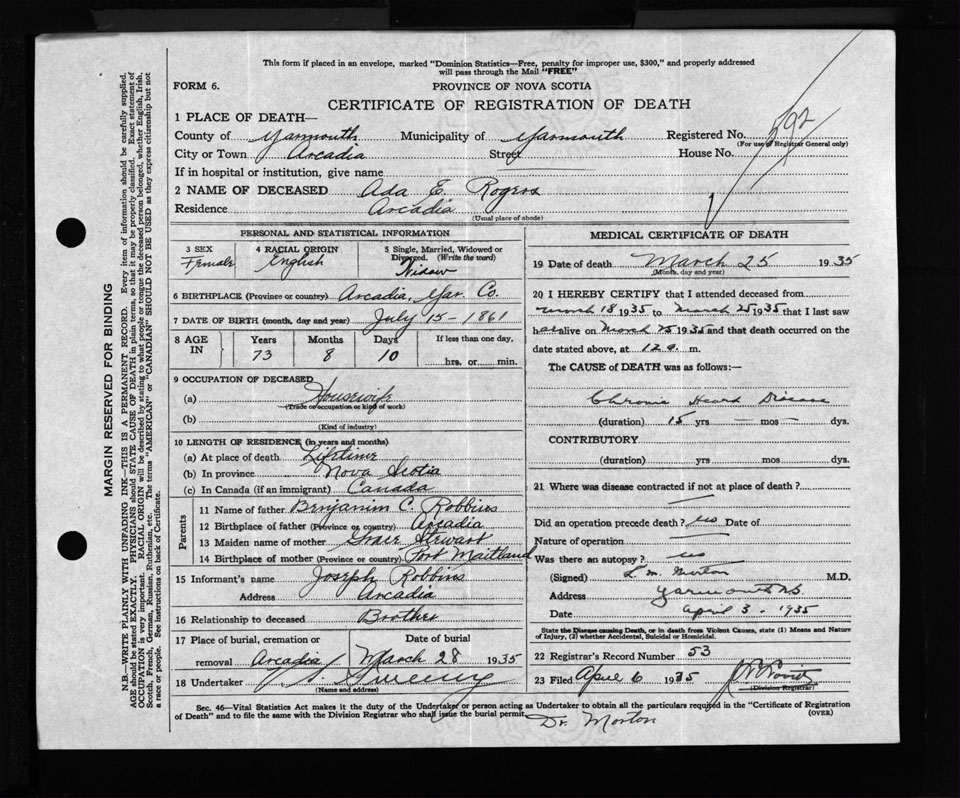 This form if placed in an envelope, marked "Dominion Statistics—Free, penalty for improper use, $300," and properly addressed
will pass through the Mail "FREE"
FORM 6.
PROVINCE OF NOVA SCOTIA
CERTIFICATE OF REGISTRATION OF DEATH
1 PLACE OF DEATH—
County of Yarmouth Municipality of Yarmouth Registered No. 592
(For use of Registrar General only)
City or Town Arcadia Street House No.
If in hospital or institution, give name
2 NAME OF DECEASED Ada E. Rogers
Residence Arcadia
(Usual place of abode)
PERSONAL AND STATISTICAL INFORMATION
3 SEX Female
4 RACIAL ORIGIN English
5 Single, Married, Widowed or Divorced. (Write the word) Widow
6 BIRTHPLACE (Province or country) Arcadia, Yar. Co.
7 DATE OF BIRTH (month, day and year) July 15 - 1861
8 AGE IN Years 73 Months 8 Days 10 If less than one day, hrs. or min.
9 OCCUPATION OF DECEASED
(a) Housewife
(Trade or occupation or kind of work)
(b)
(Kind of industry)
10 LENGTH OF RESIDENCE (in years and months)
(a) At place of death Lifetime
(b) In province Nova Scotia
(c) In Canada (if an immigrant) Canada
Parents
11 Name of father Benjamin C. Robbins
12 Birthplace of father (Province or country) Arcadia
13 Maiden name of mother Grace Stewart
14 Birthplace of mother (Province or country) Port Maitland
15 Informant's name Joseph Robbins
Address Arcadia
16 Relationship to deceased Brother
17 Place of burial, cremation or removal Arcadia
Date of burial March 28 1935
18 Undertaker Sweeny
(Name and address)
MEDICAL CERTIFICATE OF DEATH
19 Date of death March 25 1935
(Month, day and year)
20 I HEREBY CERTIFY that I attended deceased from
March 18 1935 to March 25 1935 that I last saw
her alive on March 25 1935 and that death occurred on the
date stated above, at 12 a. m.
The CAUSE of DEATH was as follows:—
Chronic Heart Disease
(duration) 15 yrs — mos — dys.
CONTRIBUTORY
(duration) yrs mos dys.
21 Where was disease contracted if not at place of death?
Did an operation precede death? no Date of
Nature of operation
Was there an autopsy? no
(Signed) L. M. Morton M.D.
Address Yarmouth N.S.
Date April 3. 1935
State the Disease causing Death, or in death from Violent Causes, state (1) Means and Nature
of Injury, (2) whether Accidental, Suicidal or Homicidal.
22 Registrar's Record Number 53
23 Filed April 6 1935
(Division Registrar)
Sec. 46—Vital Statistics Act makes it the duty of the Undertaker or person acting as Undertaker to obtain all the particulars required in the "Certificate of Registration
of Death" and to file the same with the Division Registrar who shall issue the burial permit.
(OVER)
Dr. Morton
MARGIN RESERVED FOR BINDING
N.B.—WRITE PLAINLY WITH UNFADING INK—THIS IS A PERMANENT RECORD. Every item of information should be carefully supplied.
AGE should be stated EXACTLY. PHYSICIANS should STATE CAUSE OF DEATH in plain terms, so that it may be properly classified. Exact statement of
OCCUPATION is very important. RACIAL ORIGIN will be described by stating to what people or tongue the deceased person belonged, whether English, Irish,
Scotch, French, German, Russian, Ruthenian, etc. The terms "AMERICAN" or "CANADIAN" SHOULD NOT BE USED as they express citizenship but not
a race or people. See instructions on back of Certificate.